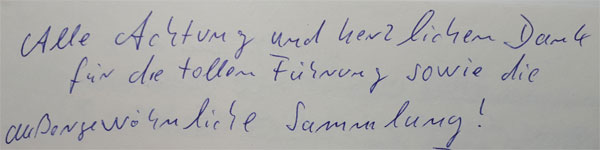 Alle Achtung und herzlichen Dank
für die tollen Führung sowie die
außergewöhnliche Sammlung!